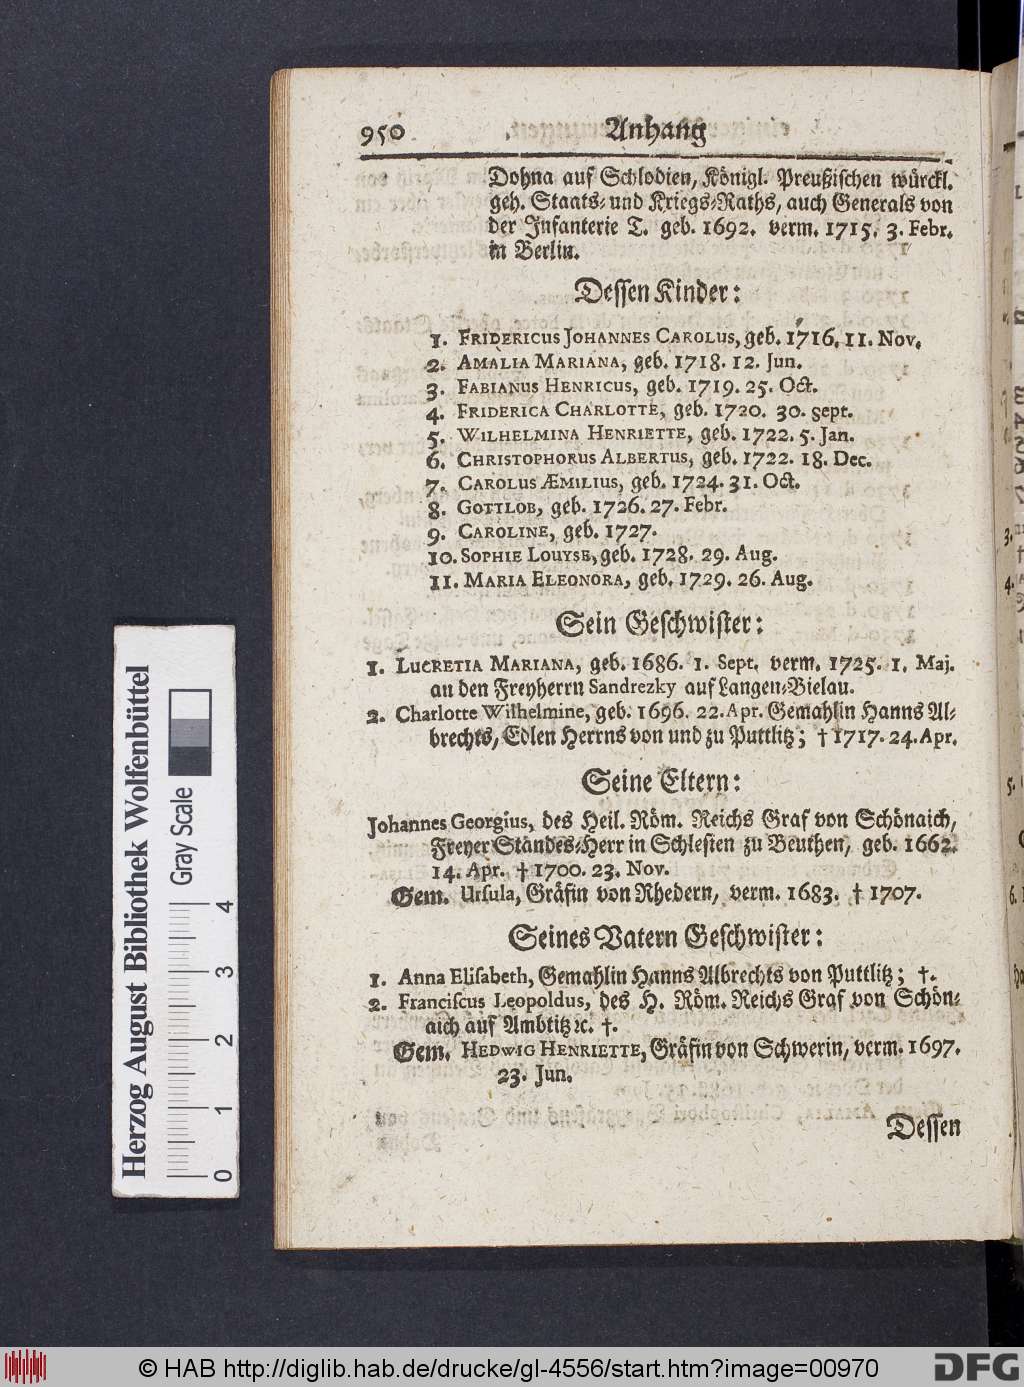 950 Anhang
Dohna auf Schlodien, Königl. Preußischen würckl.
geh. Staats- und Kriegs-Raths, auch Generals von
der Infanterie T. geb. 1692. verm. 1715. 3. Febr.
in Berlin.
Dessen Kinder:
1. FRIDERICUS JOHANNES CAROLUS, geb. 1716. 11. Nov.
2. AMALIA MARIANA, geb. 1718. 12. Jun.
3. FABIANUS HENRICUS, geb. 1719. 25. Oct.
4. FRIDERICA CHARLOTTE, geb. 1720. 30. Sept.
5. WILHELMINA HENRIETTE, geb. 1722. 5. Jan.
6. CHRISTOPHORUS ALBERTUS, geb. 1722. 18. Dec.
7. CAROLUS ÆMILIUS, geb. 1724. 31. Oct.
8. GOTTLOB, geb. 1726. 27. Febr.
9. CAROLINE, geb. 1727.
10. SOPHIE LOUYSE, geb. 1728. 29. Aug.
11. MARIA ELEONORA, geb. 1729. 26. Aug.
Sein Geschwister:
1. LUCRETIA MARIANA, geb. 1686. 1. Sept. verm. 1725. 1. Maj.
an den Freyherrn Sandrezky auf Langen-Bielau.
2. Charlotte Wilhelmine, geb. 1696. 22. Apr. Gemahlin Hanns Al-
brechts, Edlen Herrns von und zu Puttlitz; † 1717. 24. Apr.
Seine Eltern:
Johannes Georgius, des Heil. Röm. Reichs Graf von Schönaich,
Freyer Standes-Herr in Schlesien zu Beuthen, geb. 1662.
14. Apr. † 1700. 23. Nov.
Gem. Ursula, Gräfin von Rhedern, verm. 1683. † 1707.
Seines Vatern Geschwister:
1. Anna Elisabeth, Gemahlin Hanns Albrechts von Puttlitz; †.
2. Franciscus Leopoldus, des H. Röm. Reichs Graf von Schön-
aich auf Ambtitz ꝛc. †.
Gem. HEDWIG HENRIETTE, Gräfin von Schwerin, verm. 1697.
23. Jun.
Dessen
Herzog August Bibliothek Wolfenbüttel
Gray Scale
0 1 2 3 4
© HAB http://diglib.hab.de/drucke/gl-4556/start.htm?image=00970
DFG